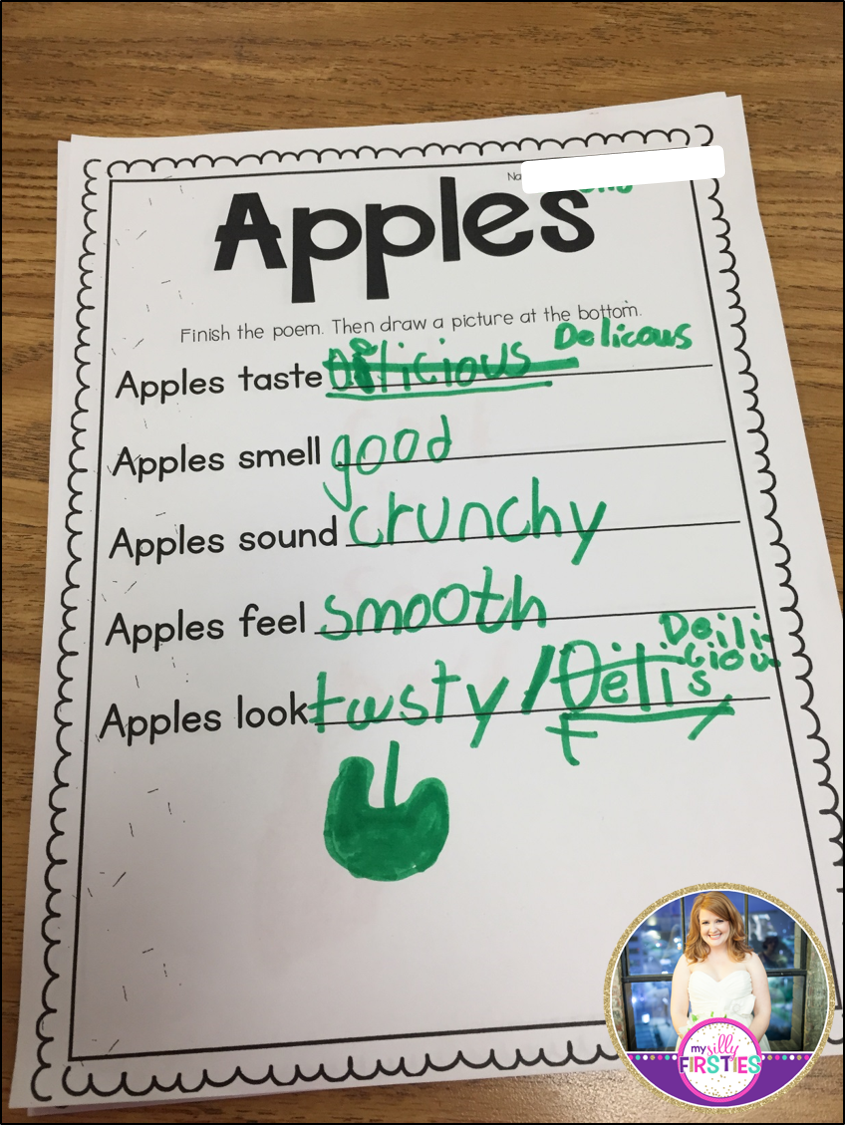 Na
Apples
Finish the poem. Then draw a picture at the bottom.
Delicous
Apples taste Dilicious
Apples smell good
Apples sound crunchy
Apples feel smooth
Deili-
ciou-
s
Apples look tasty / Deli
t
my silly
FIRSTIES